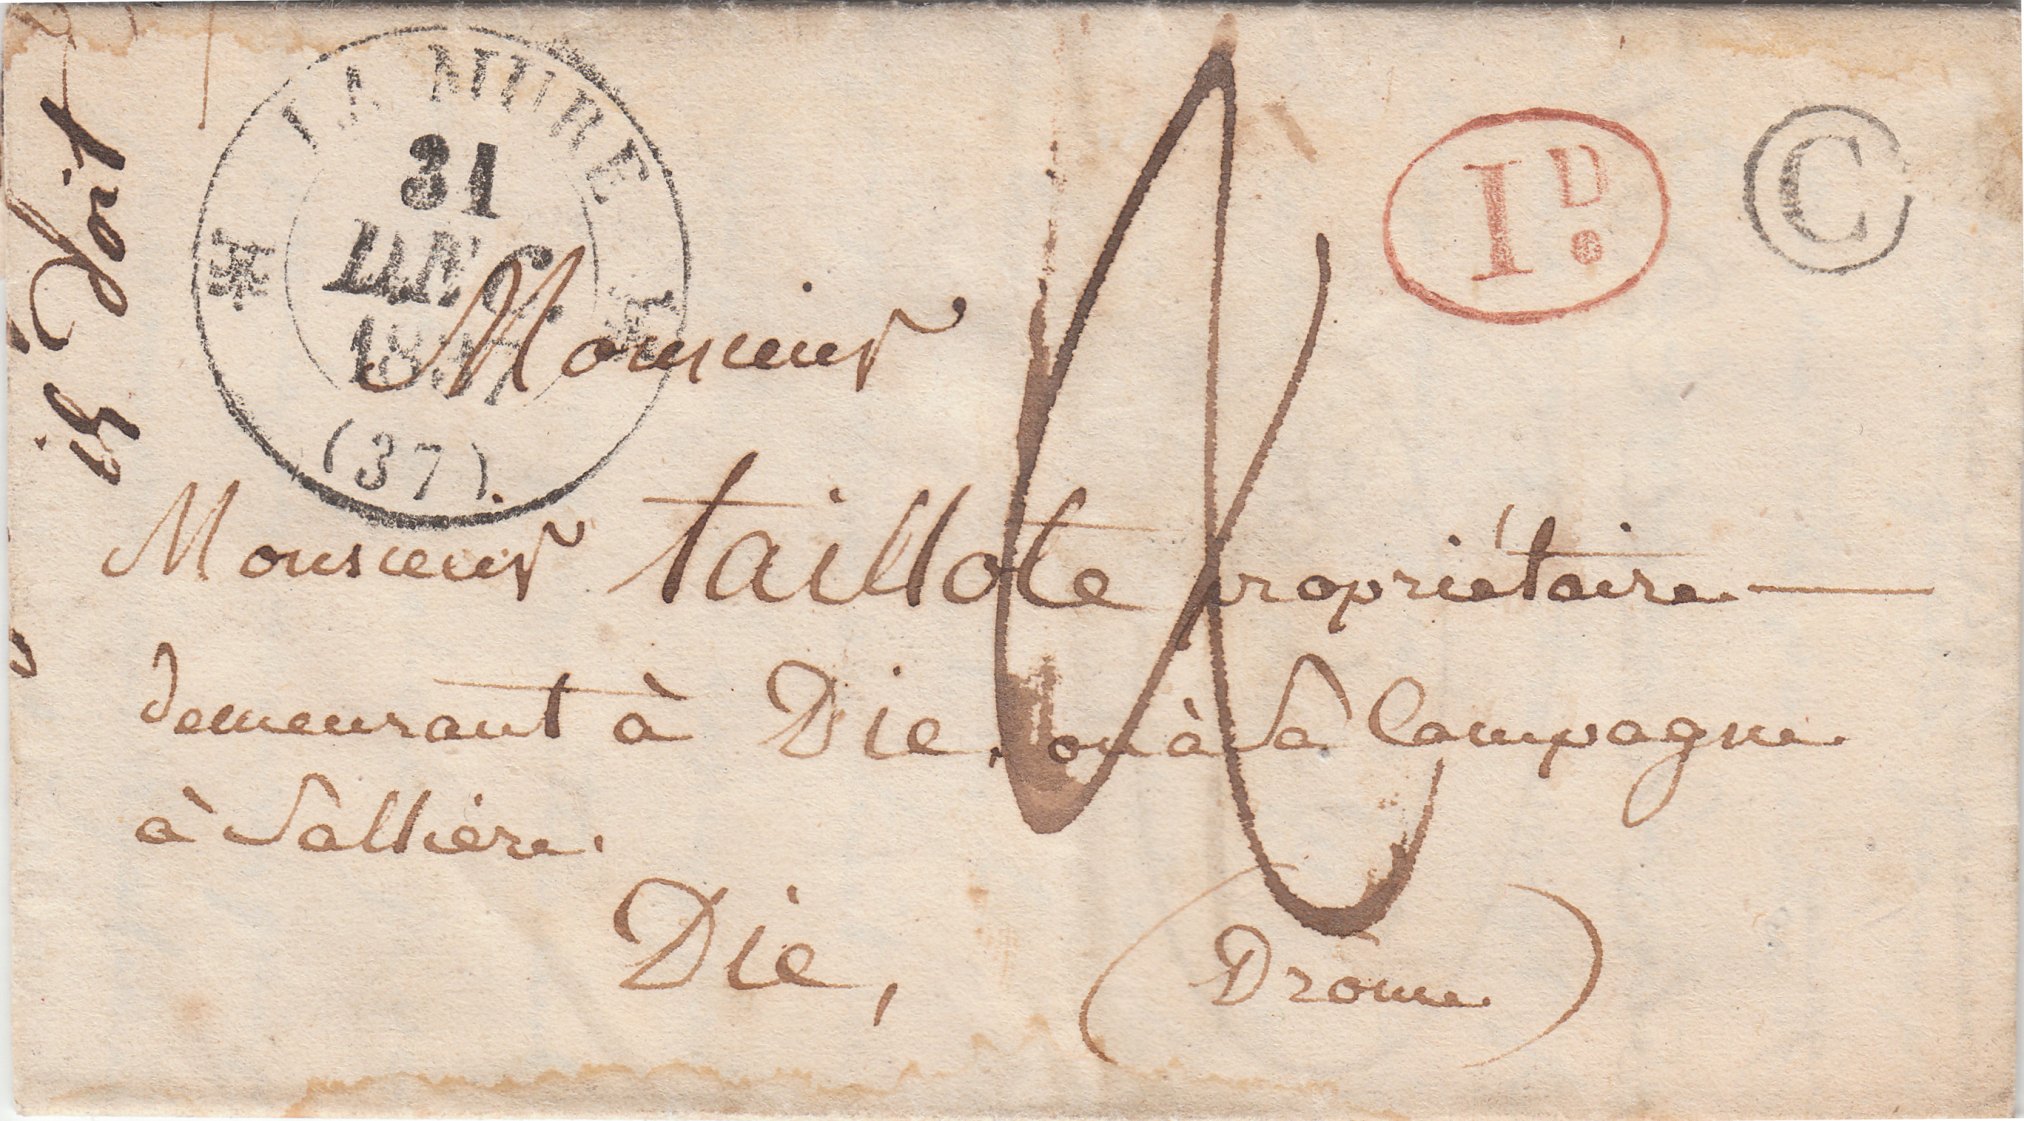 LA MURE
31
JANV.
1837
(37)
1 D.
C
il doit
Monsieur
Monsieur taillote propriétaire
demeurant à Die, ou à la Campagne
à Sallière.
Die, (Drôme)